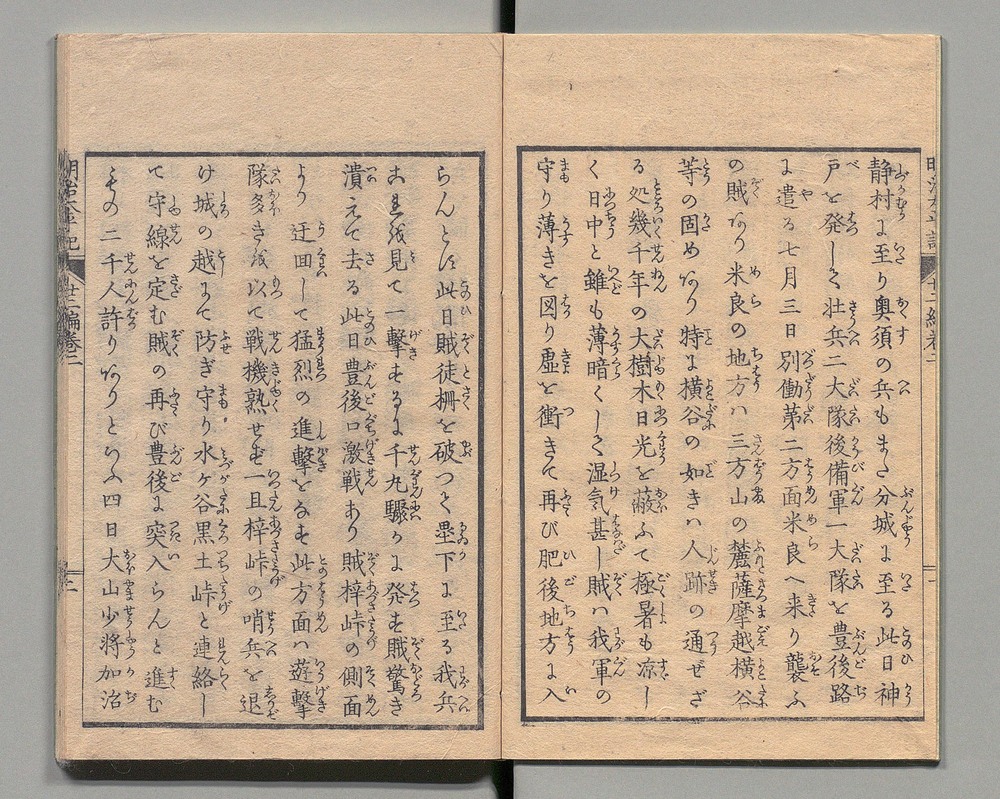 静村に至り奥須の兵もまた分城に至る此日神
戸を発して壮兵二大隊後備軍一大隊を豊後路
に遣る七月三日別働第二方面米良へ来り襲ふ
の賊あり米良の地方ハ三方山の麓薩摩越横谷
等の固めあり特に横谷の如きハ人跡の通ぜざ
る処幾千年の大樹木日光を蔽ふて極暑も凉し
く日中と雖も薄暗くして湿気甚し賊ハ我軍の
守り薄きを図り虚を衝きて再び肥後地方に入
らんとす此日賊徒柵を破つて塁下に至る我兵
これを見て一撃するに千丸驟かに発す賊驚き
潰えて去る此日豊後口激戦あり賊梓峠の側面
より迂回して猛烈の進撃をなす此方面ハ遊撃
隊多きを以て戦機熟せず一旦梓峠の哨兵を退
け城の越にて防ぎ守り水ケ谷黒土峠と連絡し
て守線を定む賊の再び豊後に突入らんと進む
もの二千人許りありといふ四日大山少将加治
明治太平記
廿二編巻二
二